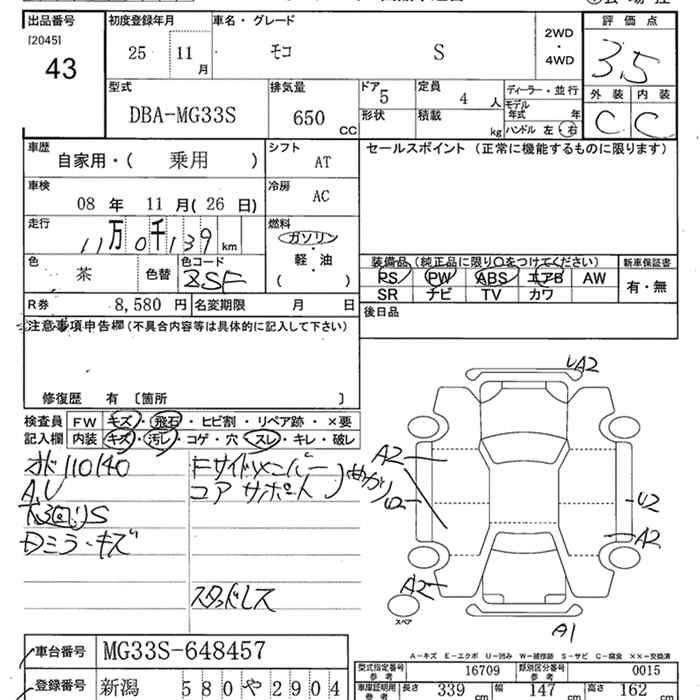 出品番号 初度登録年月 車名・グレード 評価点
[2045] 43 25 11月 モコ S 2WD・4WD 3.5
型式 DBA-MG33S 排気量 650 cc ドア 5 定員 4人 ディーラー・並行 外装 内装
形状 積載 kg モデル年式 年 ハンドル 左 右 C C
車歴 自家用・(乗用) シフト AT セールスポイント (正常に機能するものに限ります)
車検 08年 11月(26日) 冷房 AC
走行 11万0千139km 燃料 ガソリン
軽・油
( )
色 茶 色替 色コード 装備品(純正品に限り○をつけてください) 新車保証書
PS PW ABS エアB AW 有・無
SR ナビ TV カワ
R券 8,580円 名変期限 月 日 後日品
注意事項申告欄(不具合内容等は具体的に記入して下さい)
修復歴 有 〔箇所 〕
検査員 FW キズ・飛石・ヒビ割・リペア跡・×要
記入欄 内装 キズ・汚レ・コゲ・穴・スレ・キレ・破レ
A.U
Dミラーキズ
コアサポート
スタッドレス
UA2
A2
U2
U2
A2
A2
スペア
A1
A-キズ E-エクボ U-凹み W-補修跡 S-サビ C-腐食 ××-交換済
車台番号 MG33S-648457 型式指定番号 参考 16709 類別区分番号 参考 0015
登録番号 新潟 580 や 2904 車庫証明用 参考 長さ 339cm 幅 147cm 高さ 162cm